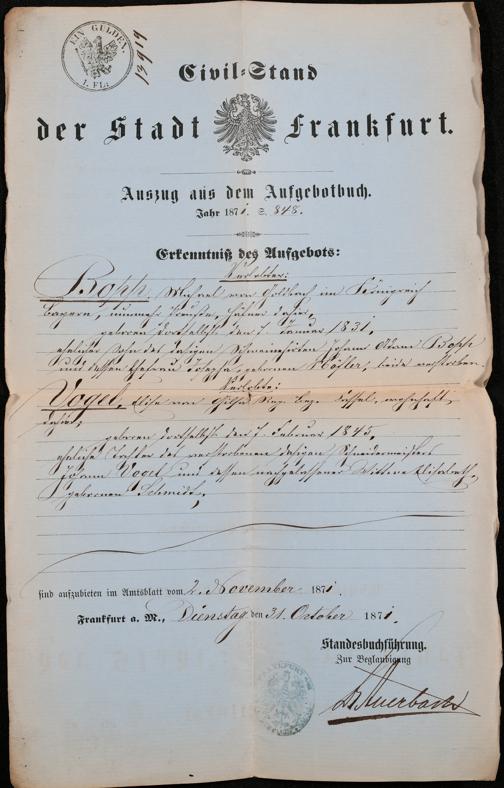 EIN GULDEN.
1. FL:
13919
Civil-Stand
der Stadt Frankfurt.
Auszug aus dem Aufgebotbuch.
Jahr 1871. S. 848.
Erkenntniß des Aufgebots:
Verlobter:
Bopp, Michael von Goldbach im Königreich
Bayern,
geboren daselbst den 7. Januar 1831,
ehelicher Sohn des dasigen Schweinehirten Johann Adam Bopp
und dessen Ehefrau Josepha, geborenen beide verstorben.
Verlobte:
Vogel, Elise von Cassel, wohnhaft
dahier,
geboren daselbst den 7. Februar 1845,
eheliche Tochter des verstorbenen dasigen Schneidermeisters
Johann Vogel und dessen nachgelassener Wittwe Elisabeth,
geborenen Schmidt,
sind aufzubieten im Amtsblatt vom 2. November 1871.
Frankfurt a. M., Dienstag den 31. October 1871.
Standesbuchführung.
Zur Beglaubigung
Dr. Auerbach